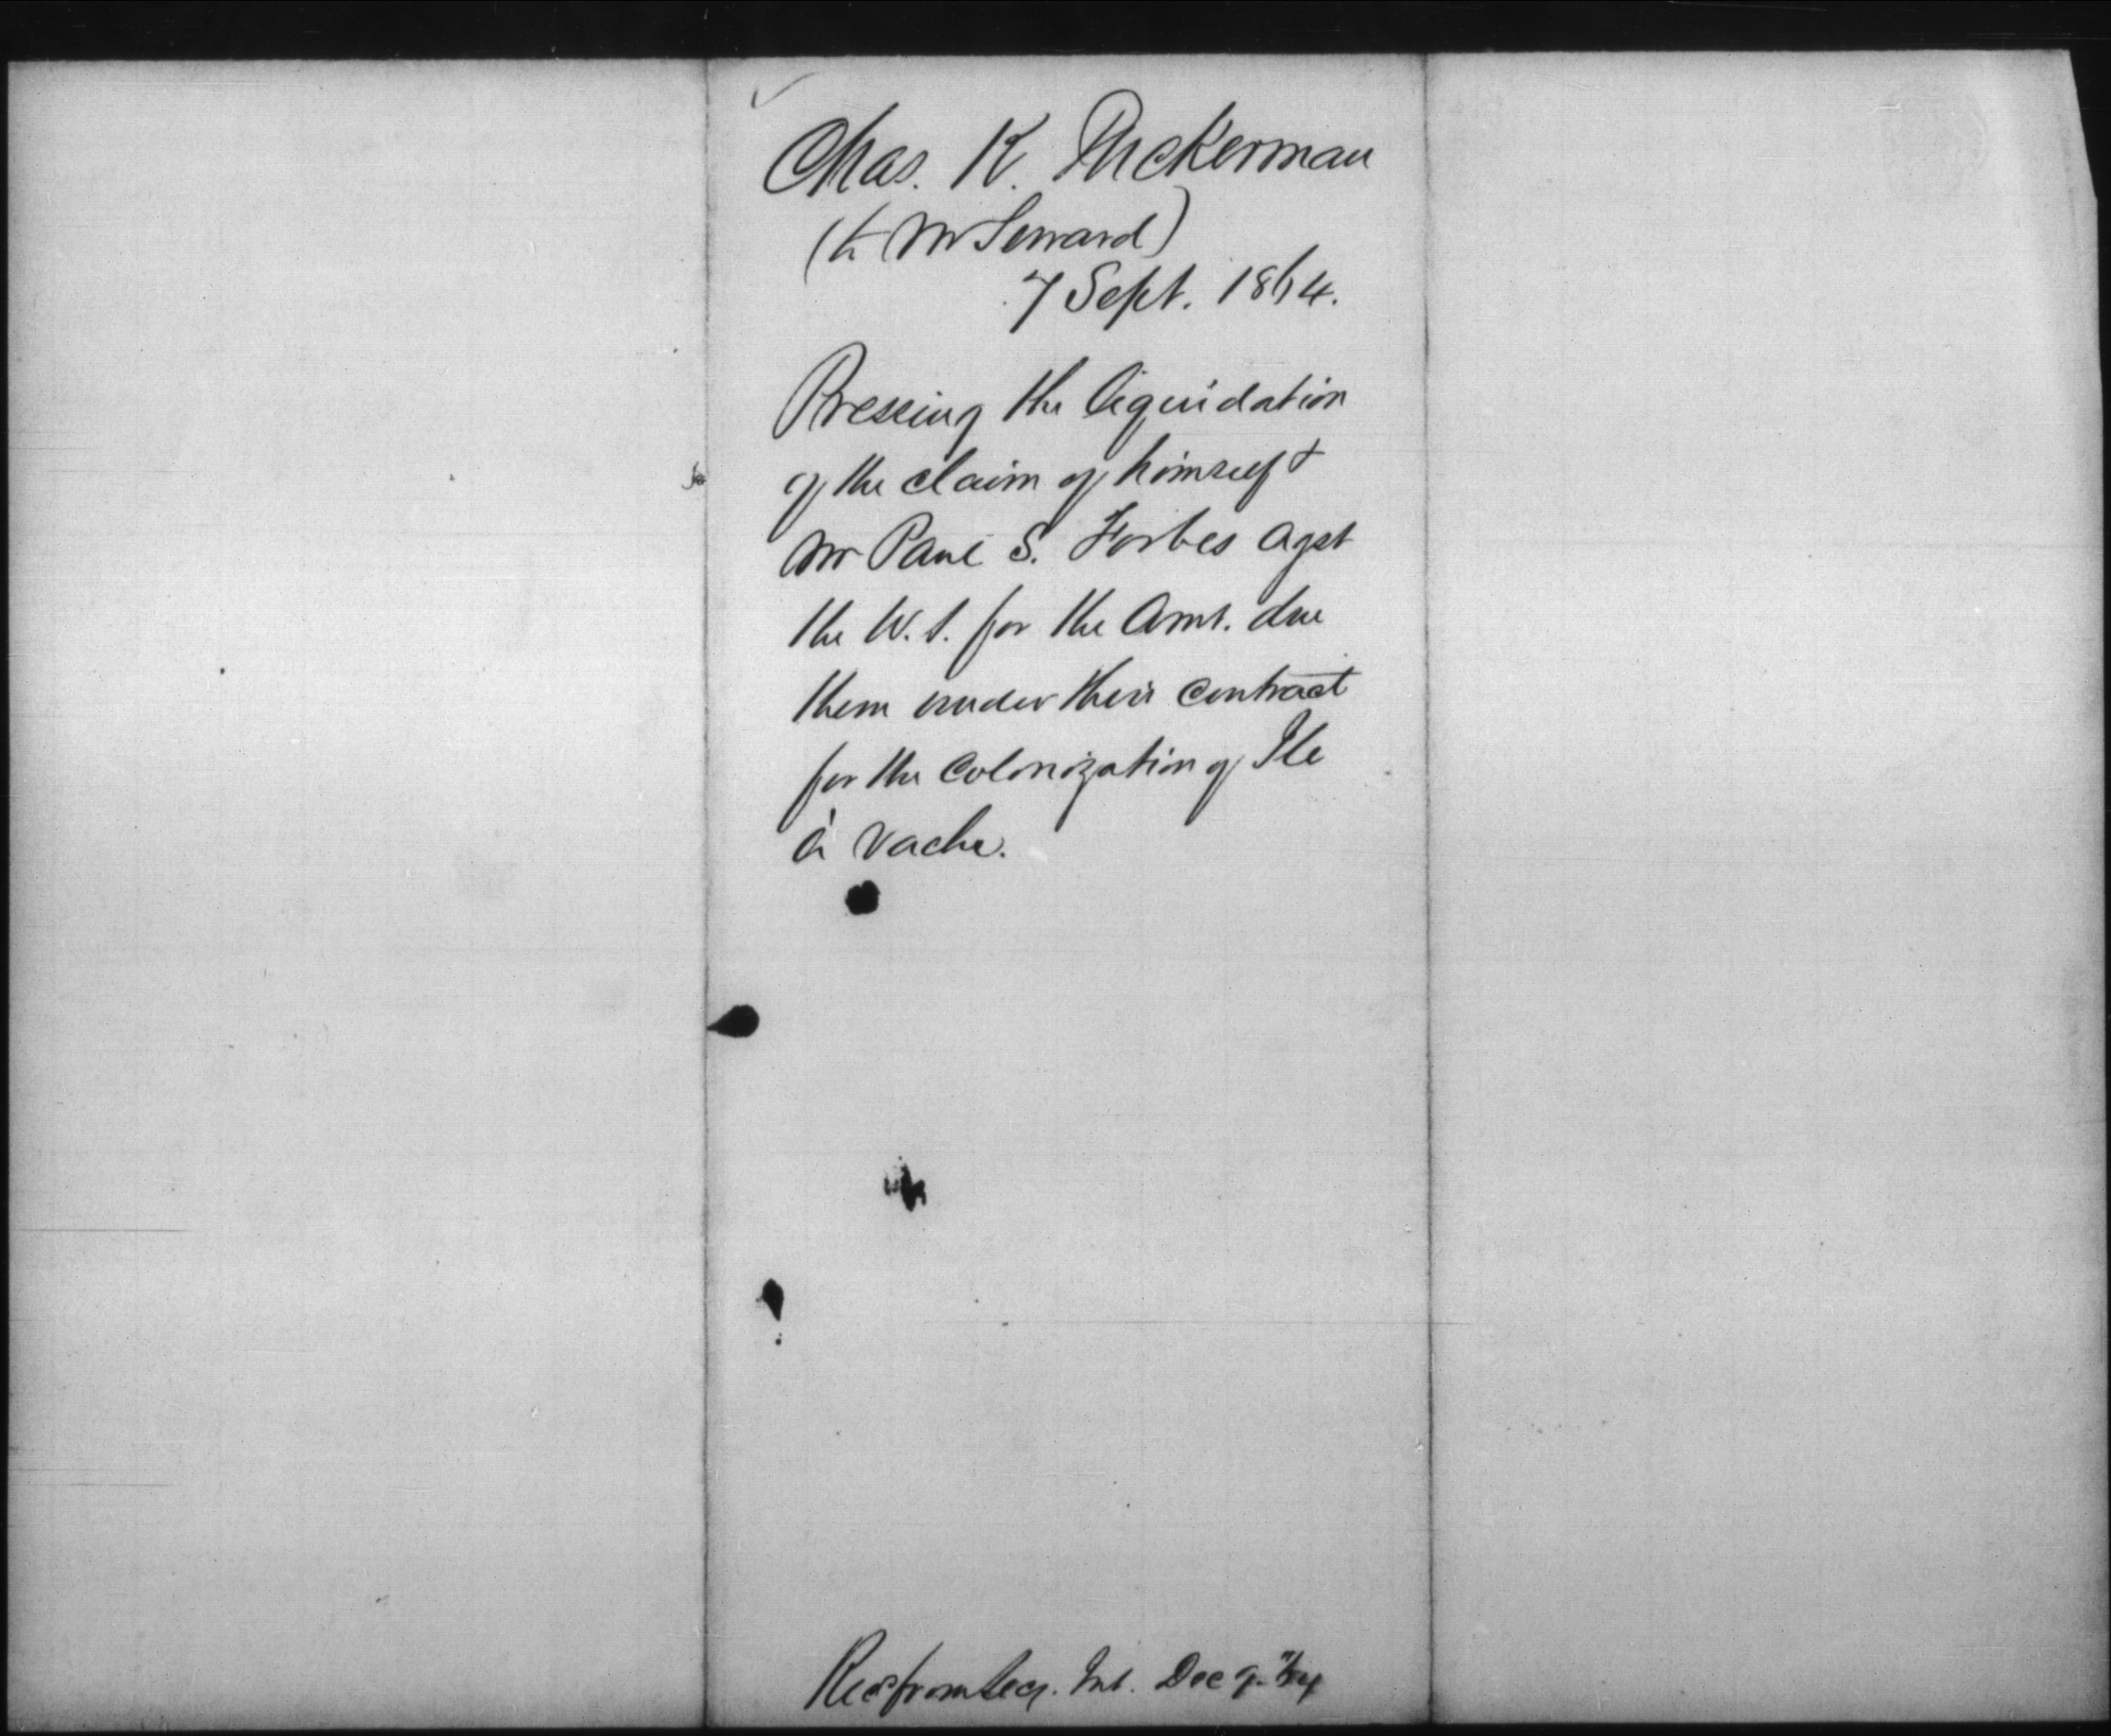 Chas. K. Tuckerman
(to Mr Seward)
7 Sept. 1864.
Pressing the liquidation
of the claim of himself &
Mr Paul S. Forbes agst
the U.S. for the Amt. due
them under their contract
for the Colonization of Ile
à Vache.
Recd from Secy. Int. Dec 9.